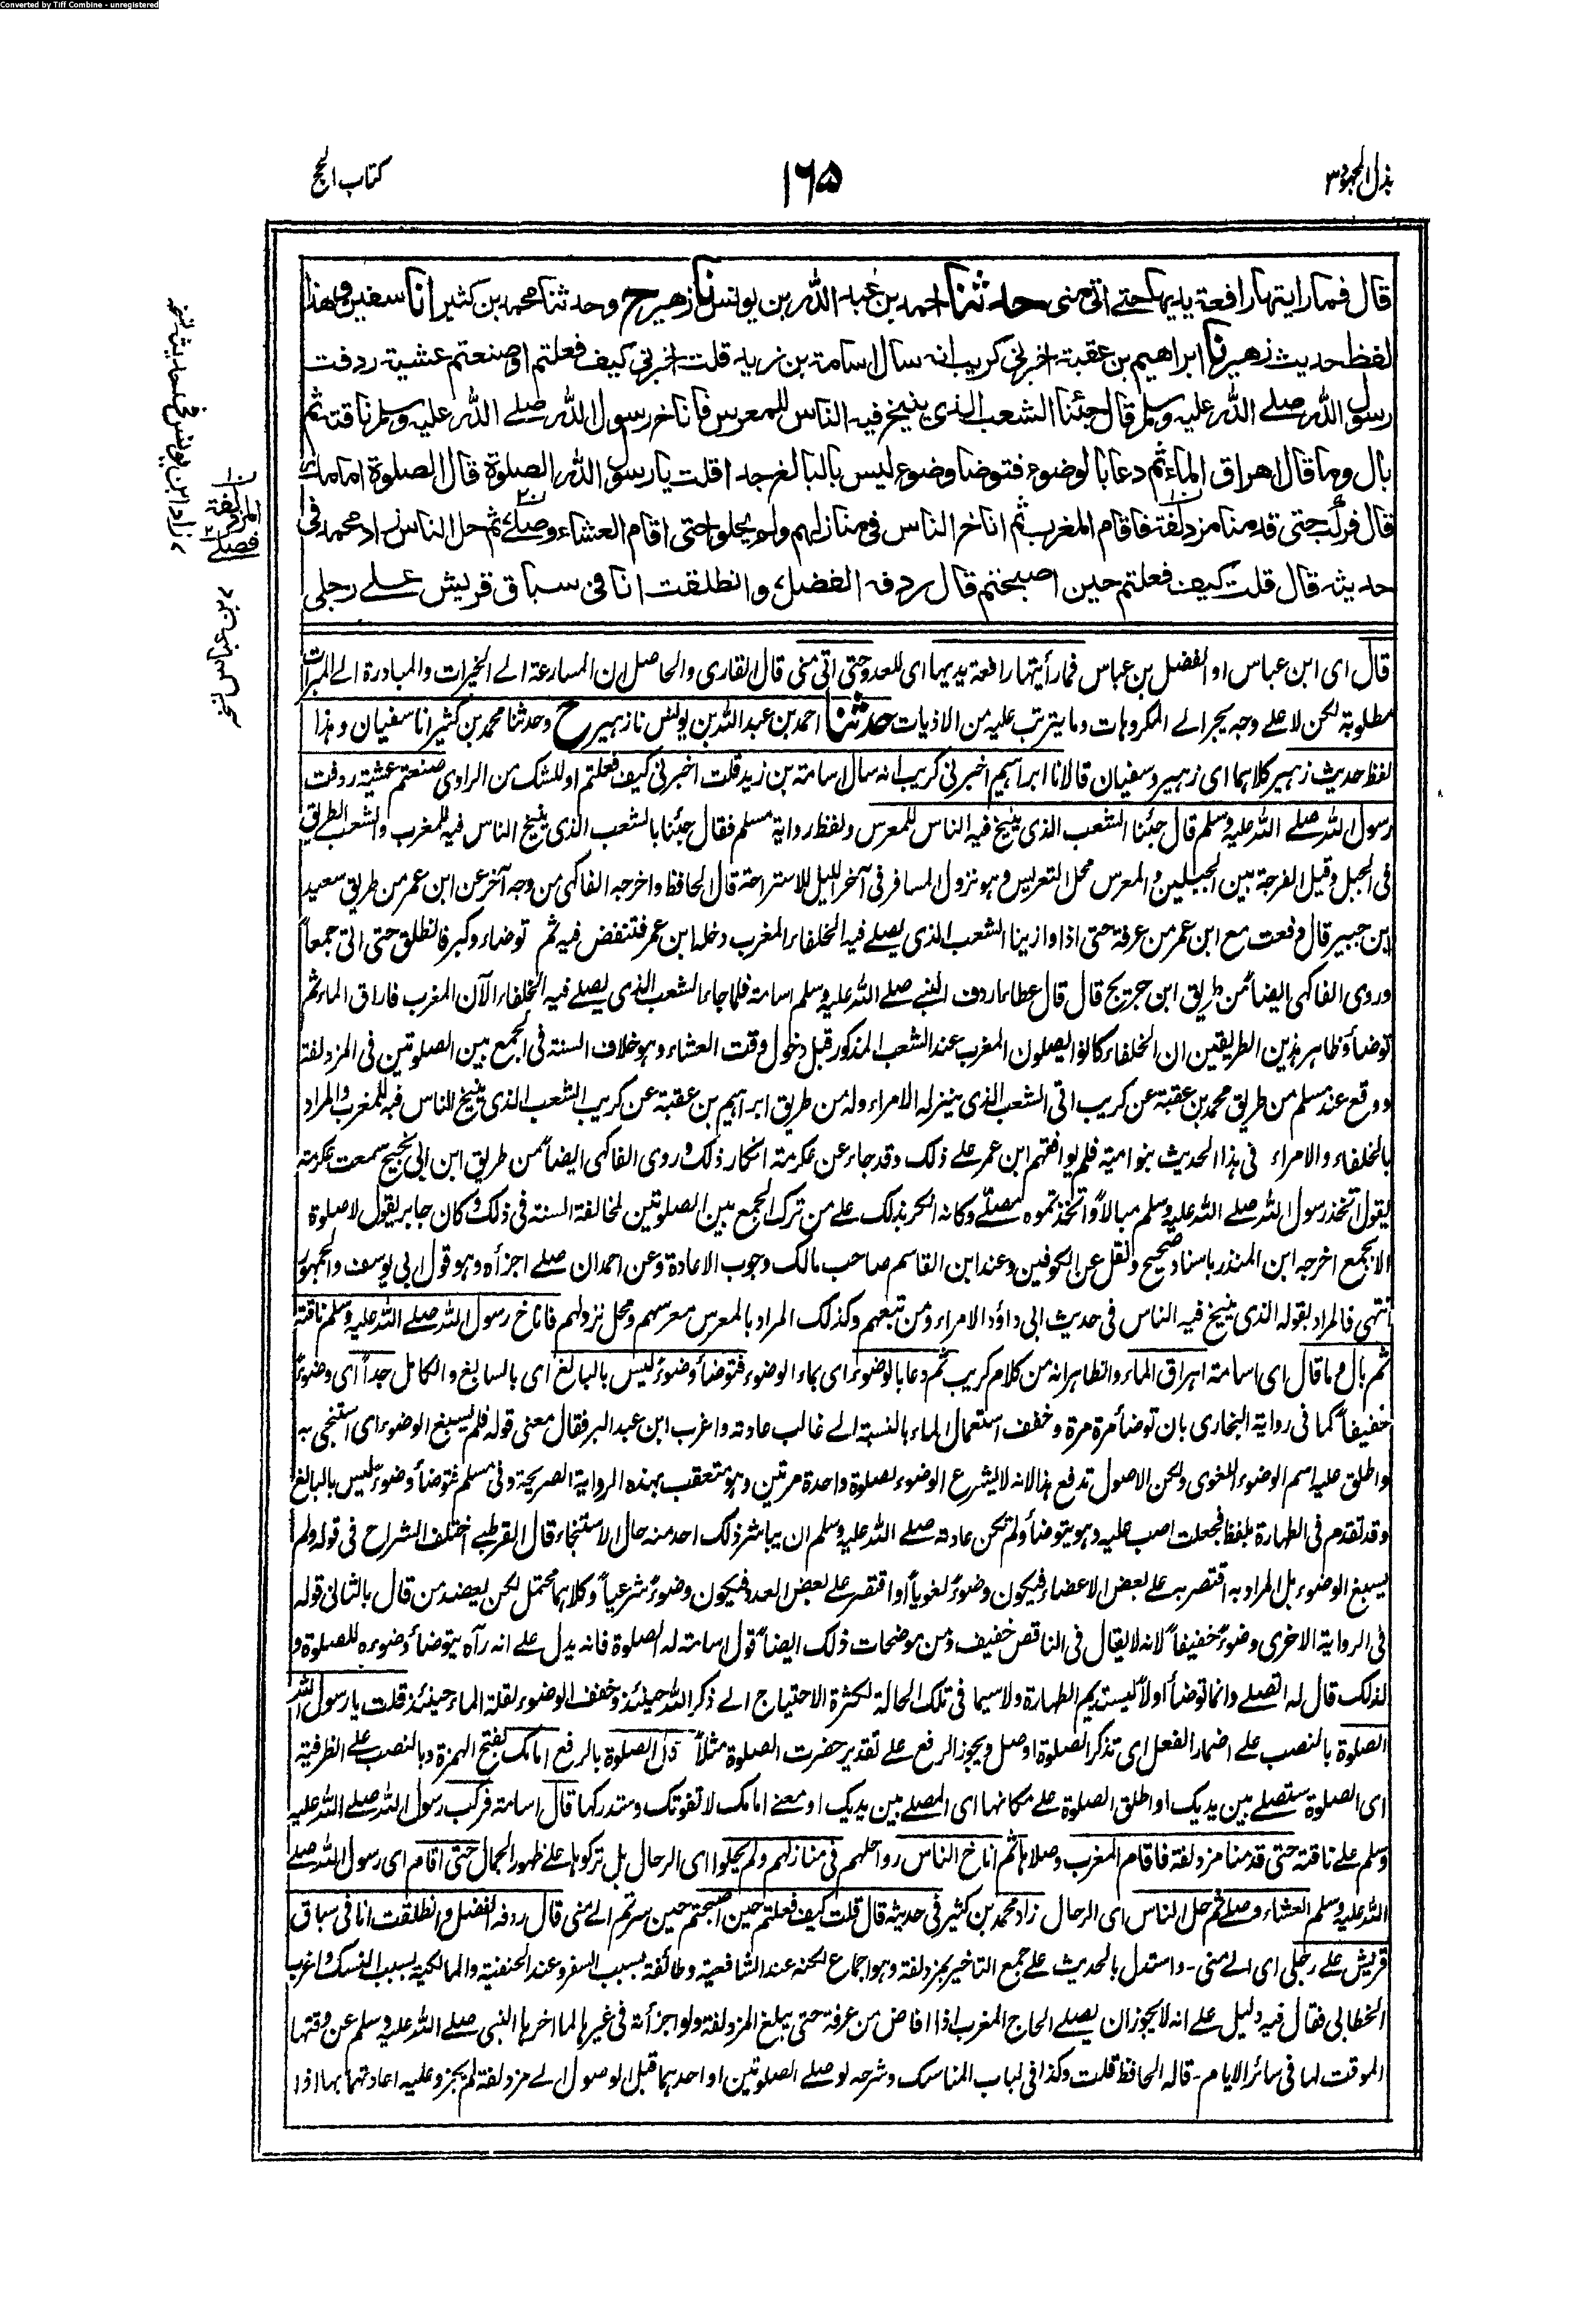 Converted by Tiff Combine - unregistered
بذل المجهود ٣
١٦٥
كتاب الحج
قال فما رايتها رافعة يديها حتے اتى منى حدثنا احمد بن عبد الله بن يونس نا زهير ح وحدثنا محمد بن كثير انا سفين وهذا
لفظ حديث زهير نا ابراهيم بن عقبة اخبرنى كريب انه سال اسامة بن زيد قلت اخبرنى كيف فعلتم او صنعتم عشية ردفت
رسول الله صلے الله عليه وسلم قال جئنا الشعب الذى ينيخ فيه الناس للمعرس فاناخ رسول الله صلے الله عليه وسلم ناقته ثم
بال وما قال اهراق الماء ثم دعا بالوضوء فتوضا وضوء ليس بالبالغ جدا قلت يا رسول الله الصلوة قال الصلوة امامك
قال فركب حتى قدمنا مزدلفة فاقام المغرب ثم اناخ الناس فى منازلهم ولم يحلوا حتى اقام العشاء وصلے ثم حل الناس زاد محمد فى
حديثه قال قلت كيف فعلتم حين اصبحتم قال ردفه الفضل وانطلقت انا فى سباق قريش علے رجلى
المزدلفة
فصلے
زاد ابن يونس فى حديثه نسخه
بن عباس نسخه
قال اى ابن عباس او الفضل بن عباس فما رأيتها رافعة يديها اى للعدو حتى اتى منى قال القارى والحاصل ان المسارعة الے الخيرات والمبادرة الے المبرات
مطلوبة لكن لا علے وجه يجر الے المكروهات وما يترتب عليه من الاذيات حدثنا احمد بن عبد الله بن يونس نا زهير ح وحدثنا محمد بن كثير انا سفيان وهذا
لفظ حديث زهير كلاهما اى زهير وسفيان قالا نا ابراهيم اخبرنى كريب انه سال اسامة بن زيد قلت اخبرنى كيف فعلتم او للشك من الراوى صنعتم عشية ردفت
رسول الله صلے الله عليه وسلم قال جئنا الشعب الذى ينيخ فيه الناس للمعرس ولفظ رواية مسلم فقال جئنا بالشعب الذى ينيخ الناس فيه للمغرب والشعب الطريق
فى الجبل وقيل الفرجة بين الجبلين والمعرس محل التعريس وهو نزول المسافر فى آخر الليل للاستراحة قال الحافظ واخرجه الفاكهى من وجه آخر عن ابن عمر من طريق سعيد
ابن جبير قال دفعت مع ابن عمر من عرفة حتى اذا وازينا الشعب الذى يصلے فيه الخلفاء المغرب دخله ابن عمر فتنفض فيه ثم توضاء وكبر فانطلق حتى اتى جمعاً
وروى الفاكهى ايضاً من طريق ابن جريج قال قال عطاء اردف النبے صلے الله عليه وسلم اسامة فلما جاء الشعب الذى يصلے فيه الخلفاء الآن المغرب فاراق الماء ثم
توضأ وظاهر هذين الطريقين ان الخلفاء كانوا يصلون المغرب عند الشعب المذكور قبل دخول وقت العشاء وهو خلاف السنة فى الجمع بين الصلوتين فى المزدلفة
ووقع عند مسلم من طريق محمد بن عقبة عن كريب اتى الشعب الذى ينزله الامراء وله من طريق ابراهيم بن عقبة عن كريب الشعب الذى ينيخ الناس فيه للمغرب والمراد
بالخلفاء والامراء فى هذا الحديث بنو امية فلم يوافقهم ابن عمر علے ذلك وقد جاء عن عكرمة انكار ذلك وروى الفاكهى ايضاً من طريق ابن ابى نجيح سمعت عكرمة
يقول اتخذ رسول الله صلے الله عليه وسلم مبالاً واتخذتموه مصلّے وكانه انكر بذلك علے من ترك الجمع بين الصلوتين لمخالفة السنة فى ذلك وكان جابر يقول لا صلوة
الا بجمع اخرجه ابن المنذر باسناد صحيح ونقل عن الكوفين وعند ابن القاسم صاحب مالك وجوب الاعادة وعن احمد ان صلے اجزأه وهو قول ابى يوسف والجمهور
انتهى فالمراد بقوله الذى ينيخ فيه الناس فى حديث ابى داؤد الامراء ومن تبعهم وكذلك المراد بالمعرس معرسهم ومحل نزولهم فاناخ رسول الله صلے الله عليه وسلم ناقته
ثم بال وما قال اى اسامة اهراق الماء والظاهر انه من كلام كريب ثم دعا بالوضوء اى بماء الوضوء فتوضأ وضوءً ليس بالبالغ اى بالسابغ والكامل جداً اى وضوءً
خفيفاً كما فى رواية البخارى بان توضأ مرة مرة وخفف استعمال الماء بالنسبة الے غالب عادته واغرب ابن عبد البر فقال معنى قوله فلم يسبغ الوضوء اى استنجى به
واطلق عليه اسم الوضوء اللغوى ولكن الاصول تدفع هذا لانه لا يشرع الوضوء لصلوة واحدة مرتين وهو متعقب بهذه الرواية الصريحة وفى مسلم فتوضأ وضوءً ليس بالبالغ
وقد تقدم فى الطهارة بلفظ فجعلت اصب عليه وهو يتوضأ ولم تكن عادته صلے الله عليه وسلم ان يباشر ذلك احد منه حال الاستنجاء قال القرطبے اختلف الشراح فى قوله ولم
يسبغ الوضوء بل المراد به اقتصر به علے بعض الاعضاء فيكون وضوءً لغوياً او اقتصر علے بعض العدد فيكون وضوءً شرعياً وكلاهما محتمل لكن يعضد من قال بالثانى قوله
فى الرواية الاخرى وضوءً خفيفاً لانه لا يقال فى الناقص خفيف ومن موضحات ذلك ايضاً قول اسامة له الصلوة فانه يدل علے انه رآه يتوضأ وضوءه للصلوة و
لذلك قال له اتصلے وانما توضأ اولاً ليستديم الطهارة ولا سيما فى تلك الحالة لكثرة الاحتياج الے ذكر الله حينئذ وخفف الوضوء لقلة الماء حينئذ قلت يا رسول الله
الصلوة بالنصب علے اضمار الفعل اى تذكر الصلوة او صل ويجوز الرفع علے تقدير حضرت الصلوة مثلاً قال الصلوة بالرفع امامك بفتح الهمزة وبالنصب علے الظرفية
اى الصلوة ستصلے بين يديك او اطلق الصلوة علے مكانها اى المصلے بين يديك او معنے امامك لا تفوتك وستدركها قال اسامة فركب رسول الله صلے الله عليه
وسلم علے ناقته حتى قدمنا مزدلفة فاقام المغرب وصلاها ثم اناخ الناس رواحلهم فى منازلهم ولم يحلوا اى الرحال بل تركوها علے ظهور الجمال حتى اقام اى رسول الله صلے
الله عليه وسلم العشاء وصلے ثم حل الناس اى الرحال زاد محمد بن كثير فى حديثه قال قلت كيف فعلتم حين اصبحتم حين سرتم الے منى قال ردفه الفضل وانطلقت انا فى سباق
قريش علے رجلى اى الے منى - واستدل بالحديث علے جمع التاخير بمزدلفة وهو اجماع لكنه عند الشافعية وطائفة بسبب السفر وعند الحنفية والمالكية بسبب النسك واغرب
الخطابى فقال فيه دليل علے انه لا يجوز ان يصلے الحاج المغرب اذا افاض من عرفة حتى يبلغ المزدلفة ولو اجزأته فى غيرها لما اخرها النبى صلے الله عليه وسلم عن وقتها
الموقت لها فى سائر الايام - قاله الحافظ قلت وكذا فى لباب المناسك وشرحه لو صلے الصلوتين او احدهما قبل الوصول الے مزدلفة لم يجز وعليه اعادتهما بها اذا